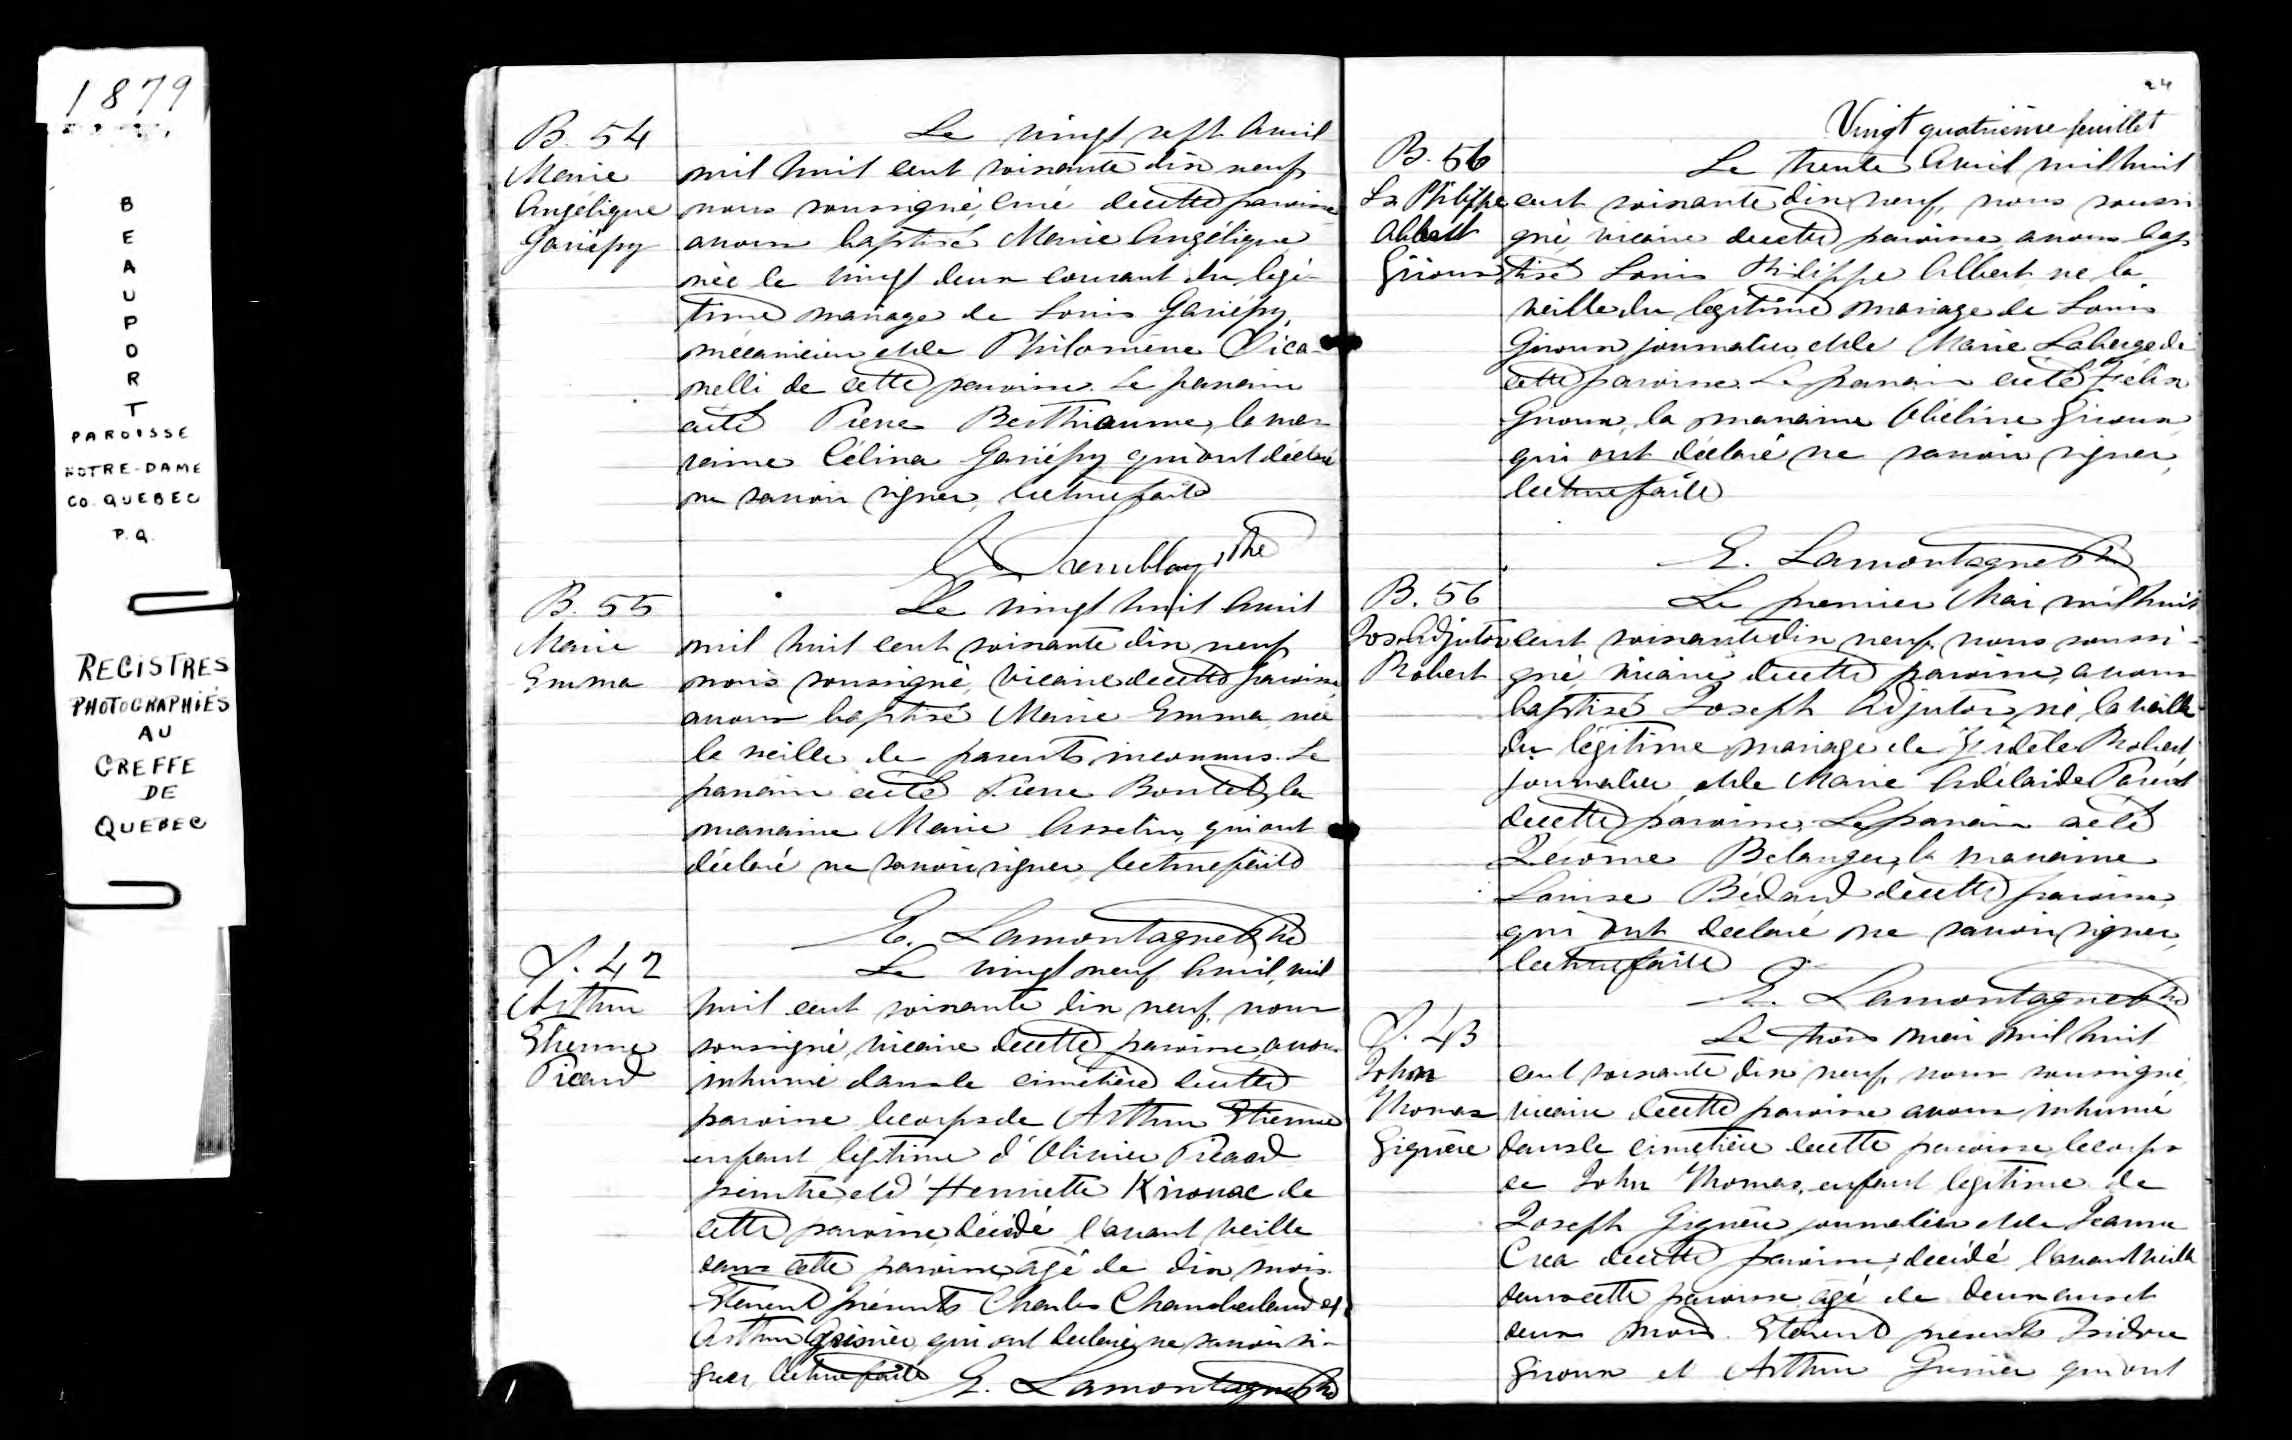 1879
BEAUPORT
PAROISSE
NOTRE-DAME
CO. QUEBEC
P.Q.
REGISTRES
PHOTOGRAPHIÉS
AU
GREFFE
DE
QUEBEC
B. 54
Marie
Angélique
Gariépy
Le vingt sept Avril
mil huit cent soixante dix neuf
nous soussigné, curé de cette paroisse
avons baptisé Marie Angélique
née le vingt deux courant du légi-
time mariage de Louis Gariépy,
mécanicien et de Philomène Vica-
nelli de cette paroisse. Le parrain
a été Pierre Berthiaume, la mar-
raine Célina Gariépy qui ont déclaré
ne savoir signer, lecture faite
G. Tremblay, Ptre
B. 55
Marie
Emma
Le vingt huit Avril
mil huit cent soixante dix neuf
nous soussigné, vicaire de cette paroisse
avons baptisé Marie Emma née
la veille de parents inconnus. Le
parrain a été Pierre Boutet, la
marraine Marie Asselin, qui ont
déclaré ne savoir signer, lecture faite
E. Lamontagne Ptre
S. 42
Arthur
Etienne
Picard
Le vingt neuf Avril, mil
huit cent soixante dix neuf, nous
soussigné, vicaire de cette paroisse, avons
inhumé dans le cimetière de cette
paroisse le corps de Arthur Etienne
enfant légitime d'Olivier Picard
peintre et d'Henriette Kirouac de
cette paroisse, décédé l'avant veille
dans cette paroisse, âgé de dix mois.
Etaient présents Charles Chamberland et
Arthur Grenier, qui ont déclaré ne savoir si-
gner, lecture faite E. Lamontagne Ptre
24
Vingt quatrième feuillet
B. 56
Ls Philippe
Albert
Giroux
Le trente Avril mil huit
cent soixante dix neuf, nous soussi
gné vicaire de cette paroisse avons bap
tisé Louis Philippe Albert né la
veille du légitime mariage de Louis
Giroux journalier et de Marie Laberge de
cette paroisse. Le parrain a été Félix
Giroux, la marraine Obéline Giroux
qui ont déclaré ne savoir signer,
lecture faite
E. Lamontagne Ptre
B. 56
Jos. Adjutor
Robert
Le premier Mai mil huit
cent soixante dix neuf, nous soussi-
gné, vicaire de cette paroisse, avons
baptisé Joseph Adjutor né la veille
du légitime mariage de Fidèle Robert
journalier, et de Marie Adélaide Parent
de cette paroisse. Le parrain a été
Jérôme Bélanger, la marraine
Louise Bédard de cette paroisse,
qui ont déclaré ne savoir signer,
lecture faite
E. Lamontagne Ptre
S. 43
John
Thomas
Giguère
Le trois mai mil huit
cent soixante dix neuf, nous soussigné,
vicaire de cette paroisse avons inhumé
dans le cimetière de cette paroisse le corps
de John Thomas, enfant légitime de
Joseph Giguère journalier et de Jeanne
Crea de cette paroisse, décédé l'avant veille
dans cette paroisse âgé de deux ans et
deux mois. Etaient présents Isidore
Giroux et Arthur Grenier qui ont